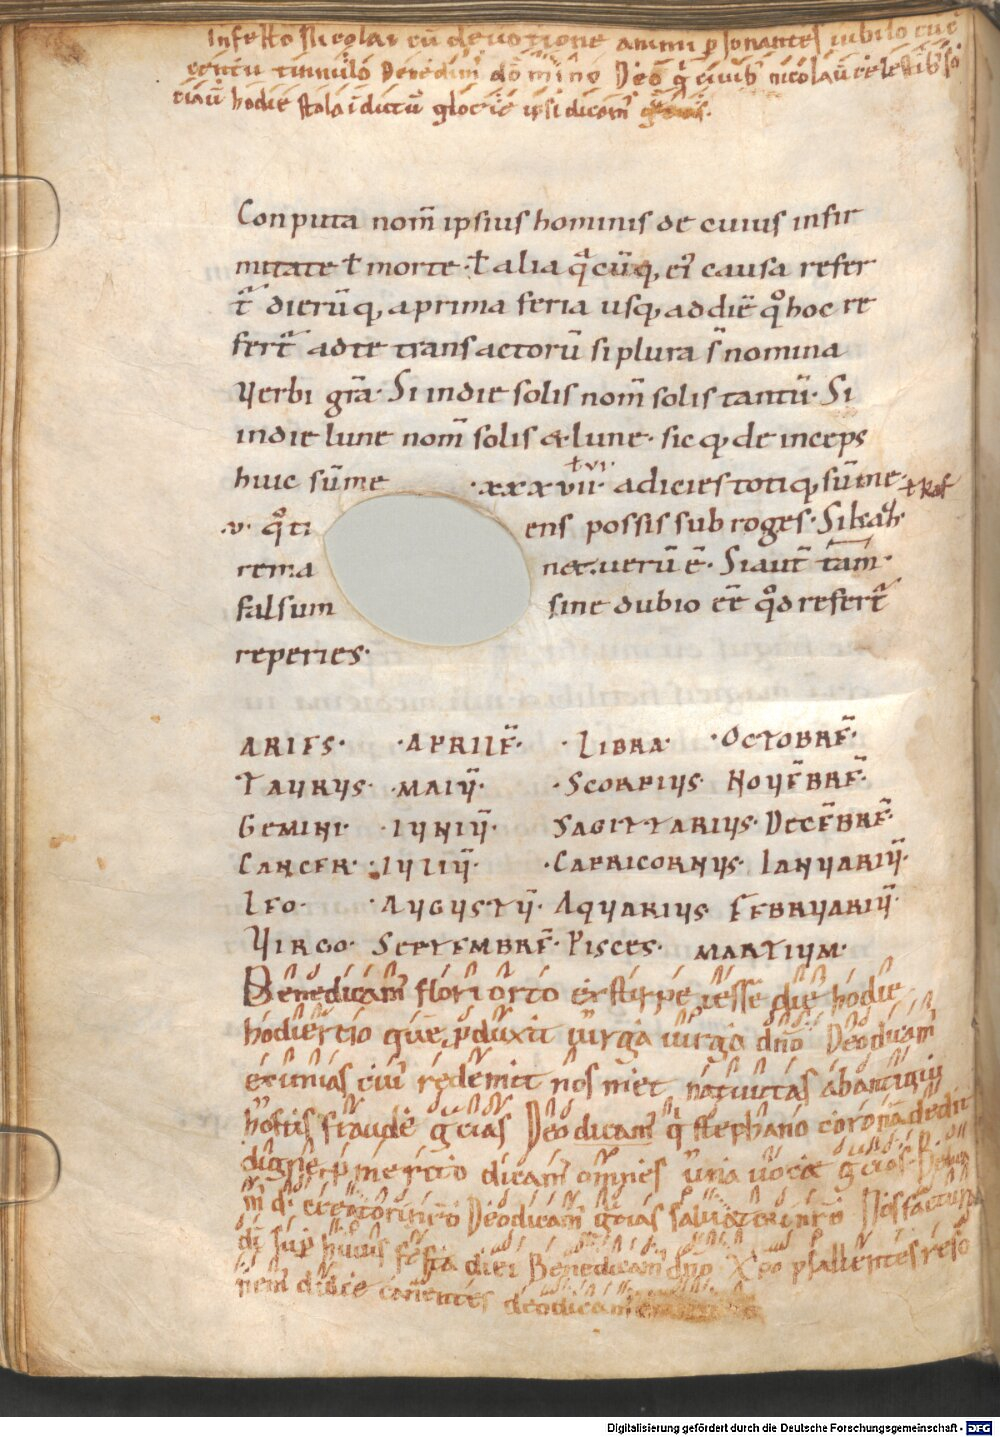 In festo Nicolai cū deuotione animi psonantes iubilo cuc̄
centu tinnulo Benedicam̄ domino Deo
hodie stola īductū glorie ipsi dicam̄
Conputa nom̄ ipsius hominis de cuius infir
mitate ł morte · ł alia q̄cūq, ei causa refer
t̄ dierūq, a prima feria usq, ad diē qͦ hoc re
fert̄ ad te transactorū si plura s̄ nomina
Verbi grā· Si in die solis nom̄ solis tantū· Si
in die lune nom̄ solis & lune· sicq, de inceps
ł vi·
huic sūme ·xxxvii· adicies totiq, sūme· ł Kal
·v· qͦti ens possis subroges· Si
rema n&· uerū ē· Siaut̄ tam̄·
falsum sine dubio eē qͦd refert̄
reperies·
ARIES· ·APRILE̅· ·LIBRA· ·OCTOBRE̅·
TAURUS· ·MAIU̅· ·SCORPIUS· NOVE̅BRE̅·
GEMINI· ·IUNIU̅· SAGITTARIUS· DECE̅BRE̅·
CANCER· ·IULIU̅· ·CAPRICORNUS· IANUARIU̅·
LEO· ·AUGUSTU̅· AQUARIUS· FEBRUARIU̅·
VIRGO· SEPTEMBRE̅· PISCES· MARTIUM·
Benedicam̄ flori orto ex stirpe iesse die hodie
hodierno quē pduxit uirga uirgo dn̄o Deo dicam̄
redemit nos natiuitas ab antiqui
hostis fraude gr̄cias Deo dicam̄ q̄ stephano coronā dedit
digne p mercio dicam̄ om̄nes una uoce gr̄cias
creatori nr̄o Deo dicam̄ gr̄cias saluatori nr̄o
sup huius festa diei Benedicam̄ dn̄o Xp̄o psallentes reso
nem̄ dulce canentes deo dicam̄
Digitalisierung gefördert durch die Deutsche Forschungsgemeinschaft - DFG